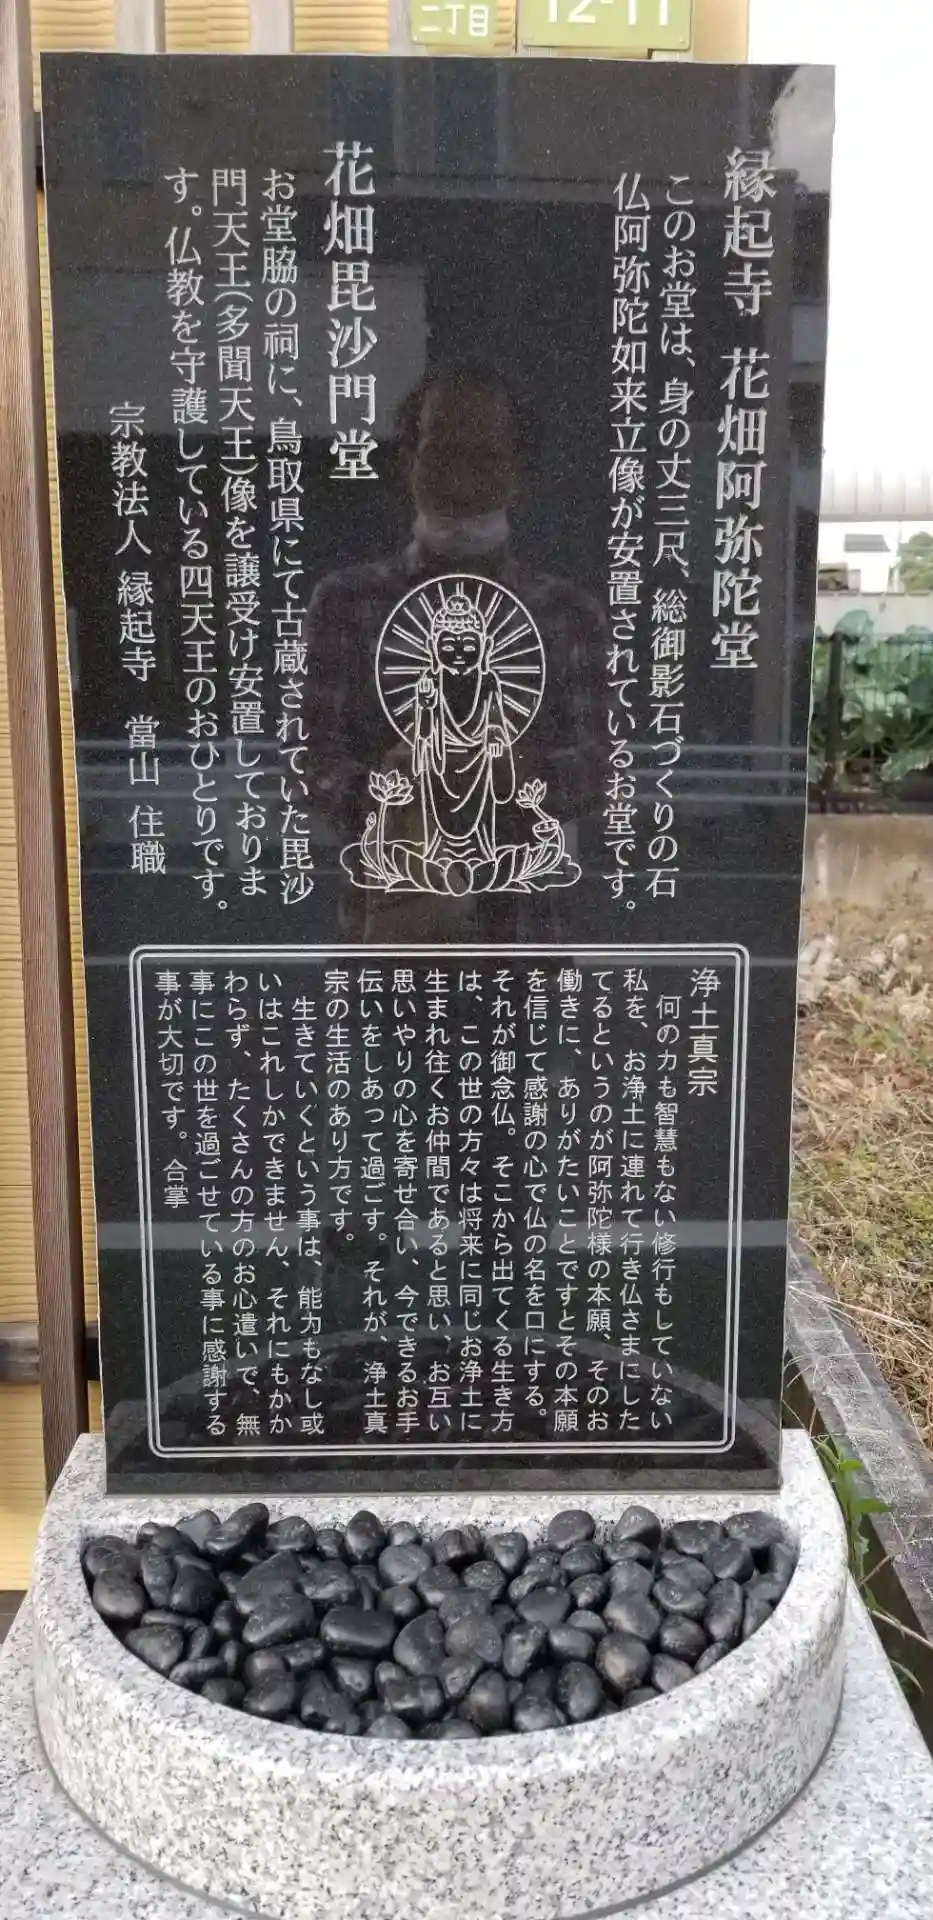 二丁目
12-11
縁起寺 花畑阿弥陀堂
このお堂は、身の丈三尺、総御影石づくりの石
仏阿弥陀如来立像が安置されているお堂です。
花畑毘沙門堂
お堂脇の祠に、鳥取県にて古蔵されていた毘沙
門天王(多聞天王)像を譲受け安置しておりま
す。仏教を守護している四天王のおひとりです。
宗教法人 縁起寺 當山 住職
浄土真宗
何の力も智慧もない修行もしていない
私を、お浄土に連れて行き仏さまにした
てるというのが阿弥陀様の本願、そのお
働きに、ありがたいことですとその本願
を信じて感謝の心で仏の名を口にする。
それが御念仏。そこから出てくる生き方
は、この世の方々は将来に同じお浄土に
生まれ往くお仲間であると思い、お互い
思いやりの心を寄せ合い、今できるお手
伝いをしあって過ごす。それが、浄土真
宗の生活のあり方です。
生きていくという事は、能力もなし或
いはこれしかできません、それにもかか
わらず、たくさんの方のお心遣いで、無
事にこの世を過ごせている事に感謝する
事が大切です。合掌